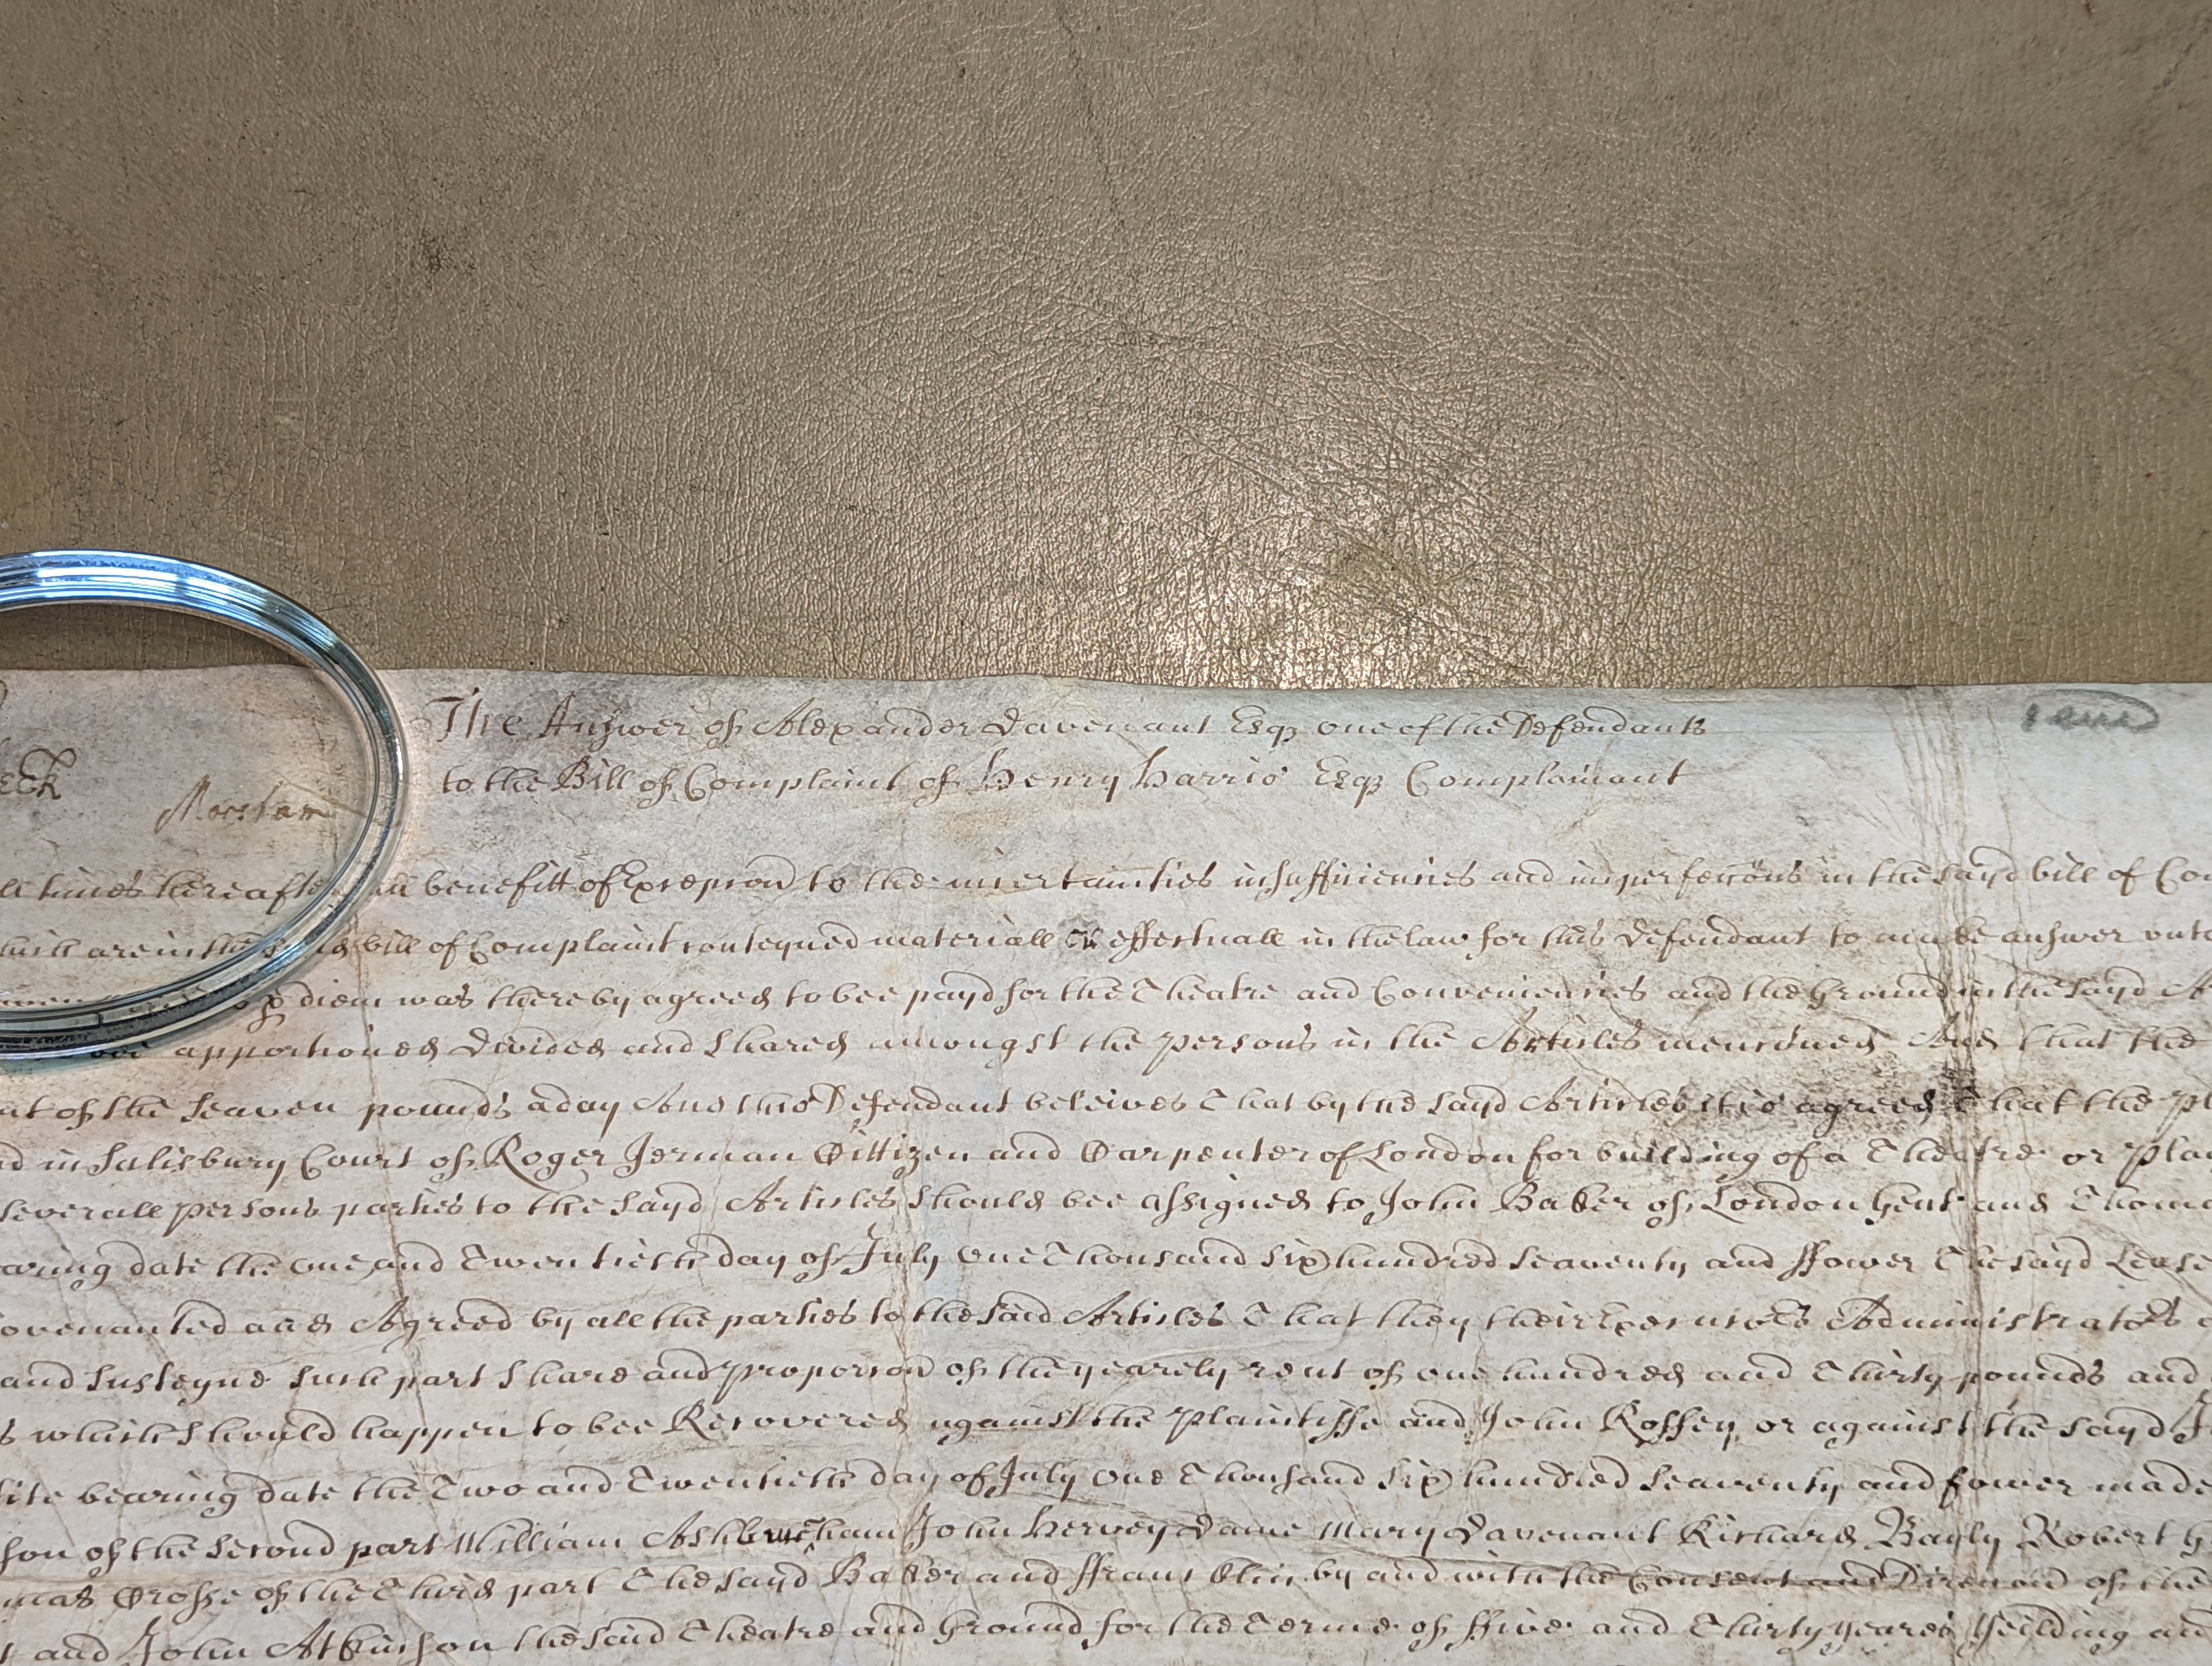 The Answer of Alexander Davenant Esqr one of the Defendants
to the Bill of Complaint of Henry Harris Esqr Complainant
eck
Morsham
ll times hereafter all benefitt of Excepcon to the incertainties insufficiencies and imperfeccons in the sayd bill of Co
are in the said bill of Complaint conteyned materiall or effectuall in the law for this Defendant to make answer unto
p diem was thereby agreed to bee payd for the Theatre and Conveniencies and the Ground in the sayd A
bee apportioned Divided and shared amongst the persons in the Articles menconed And that the
of the seaven pounds a day And this Defendant beleives That by the sayd Articles it is agreed That the pl
d in Salisbury Court of Roger Jerman Cittizen and Carpenter of London for building of a Theatre or Play
severall persons parties to the sayd Articles should bee assigned to John Baker of London Gent and Thoma
aring date the one and Twentieth day of July One Thousand six hundred seaventy and ffower The sayd Lease
ovenanted and Agreed by all the parties to the said Articles That they their Executors Administrators
and susteyne such part share and proporcon of the yearely rent of one hundred and Thirty pounds and
s which should happen to bee Recovered against the Plaintiffe and John Roffey or against the sayd J
ite bearing date the Two and Twentieth day of July One Thousand six hundred seaventy and fower made
son of the second part William Ashburnham John Hervey Dame Mary Davenant Richard Bayly Robert
mas Crosse of the Third part The sayd Baker and ffranklin by and with the Consent and Direccon of the
and John Atkinson the said Theatre and Ground for the Terme of ffive and Thirty yeares Yeilding and